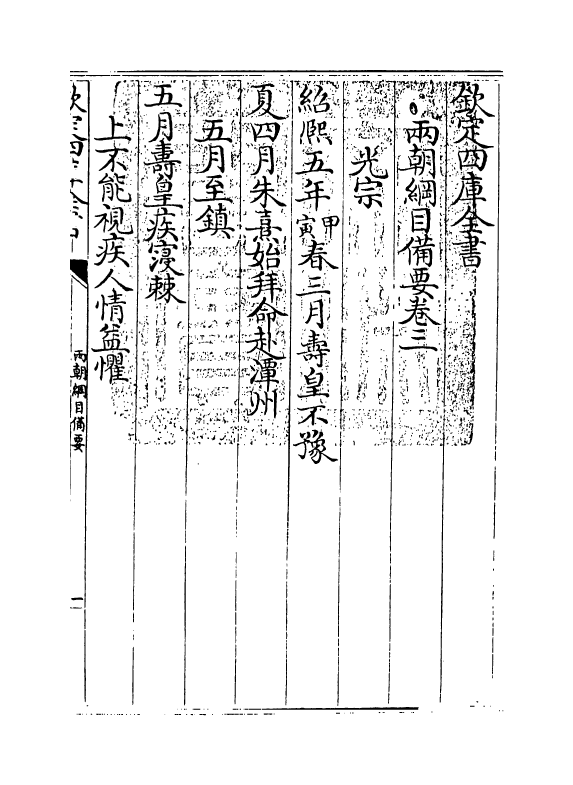 欽定四庫全書
兩朝綱目備要卷三
光宗
紹熙五年甲寅春三月壽皇不豫
夏四月朱熹始拜命赴潭州
五月至鎮
五月壽皇疾寖棘
上不能視疾人情益懼
欽定四庫全書
兩朝綱目備要
一